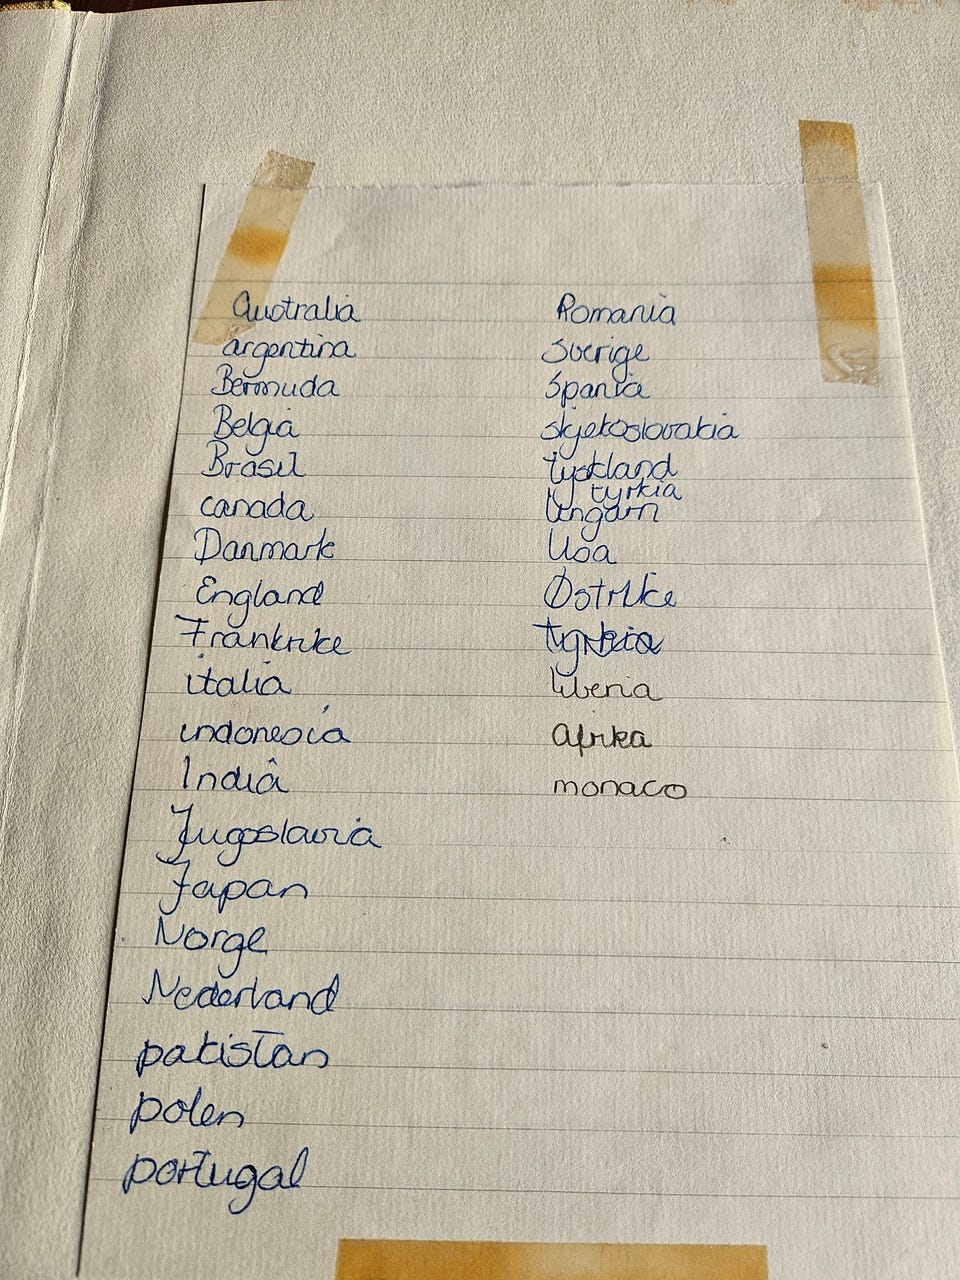 Australia
argentina
Bermuda
Belgia
Brasil
canada
Danmark
England
Frankrike
italia
indonesia
India
Jugoslavia
Japan
Norge
Nederland
pakistan
polen
portugal
Romania
Sverige
Spania
skjekoslovakia
tyskland
tyrkia
Ungarn
Usa
Østrike
tyrkia
liberia
afrika
monaco